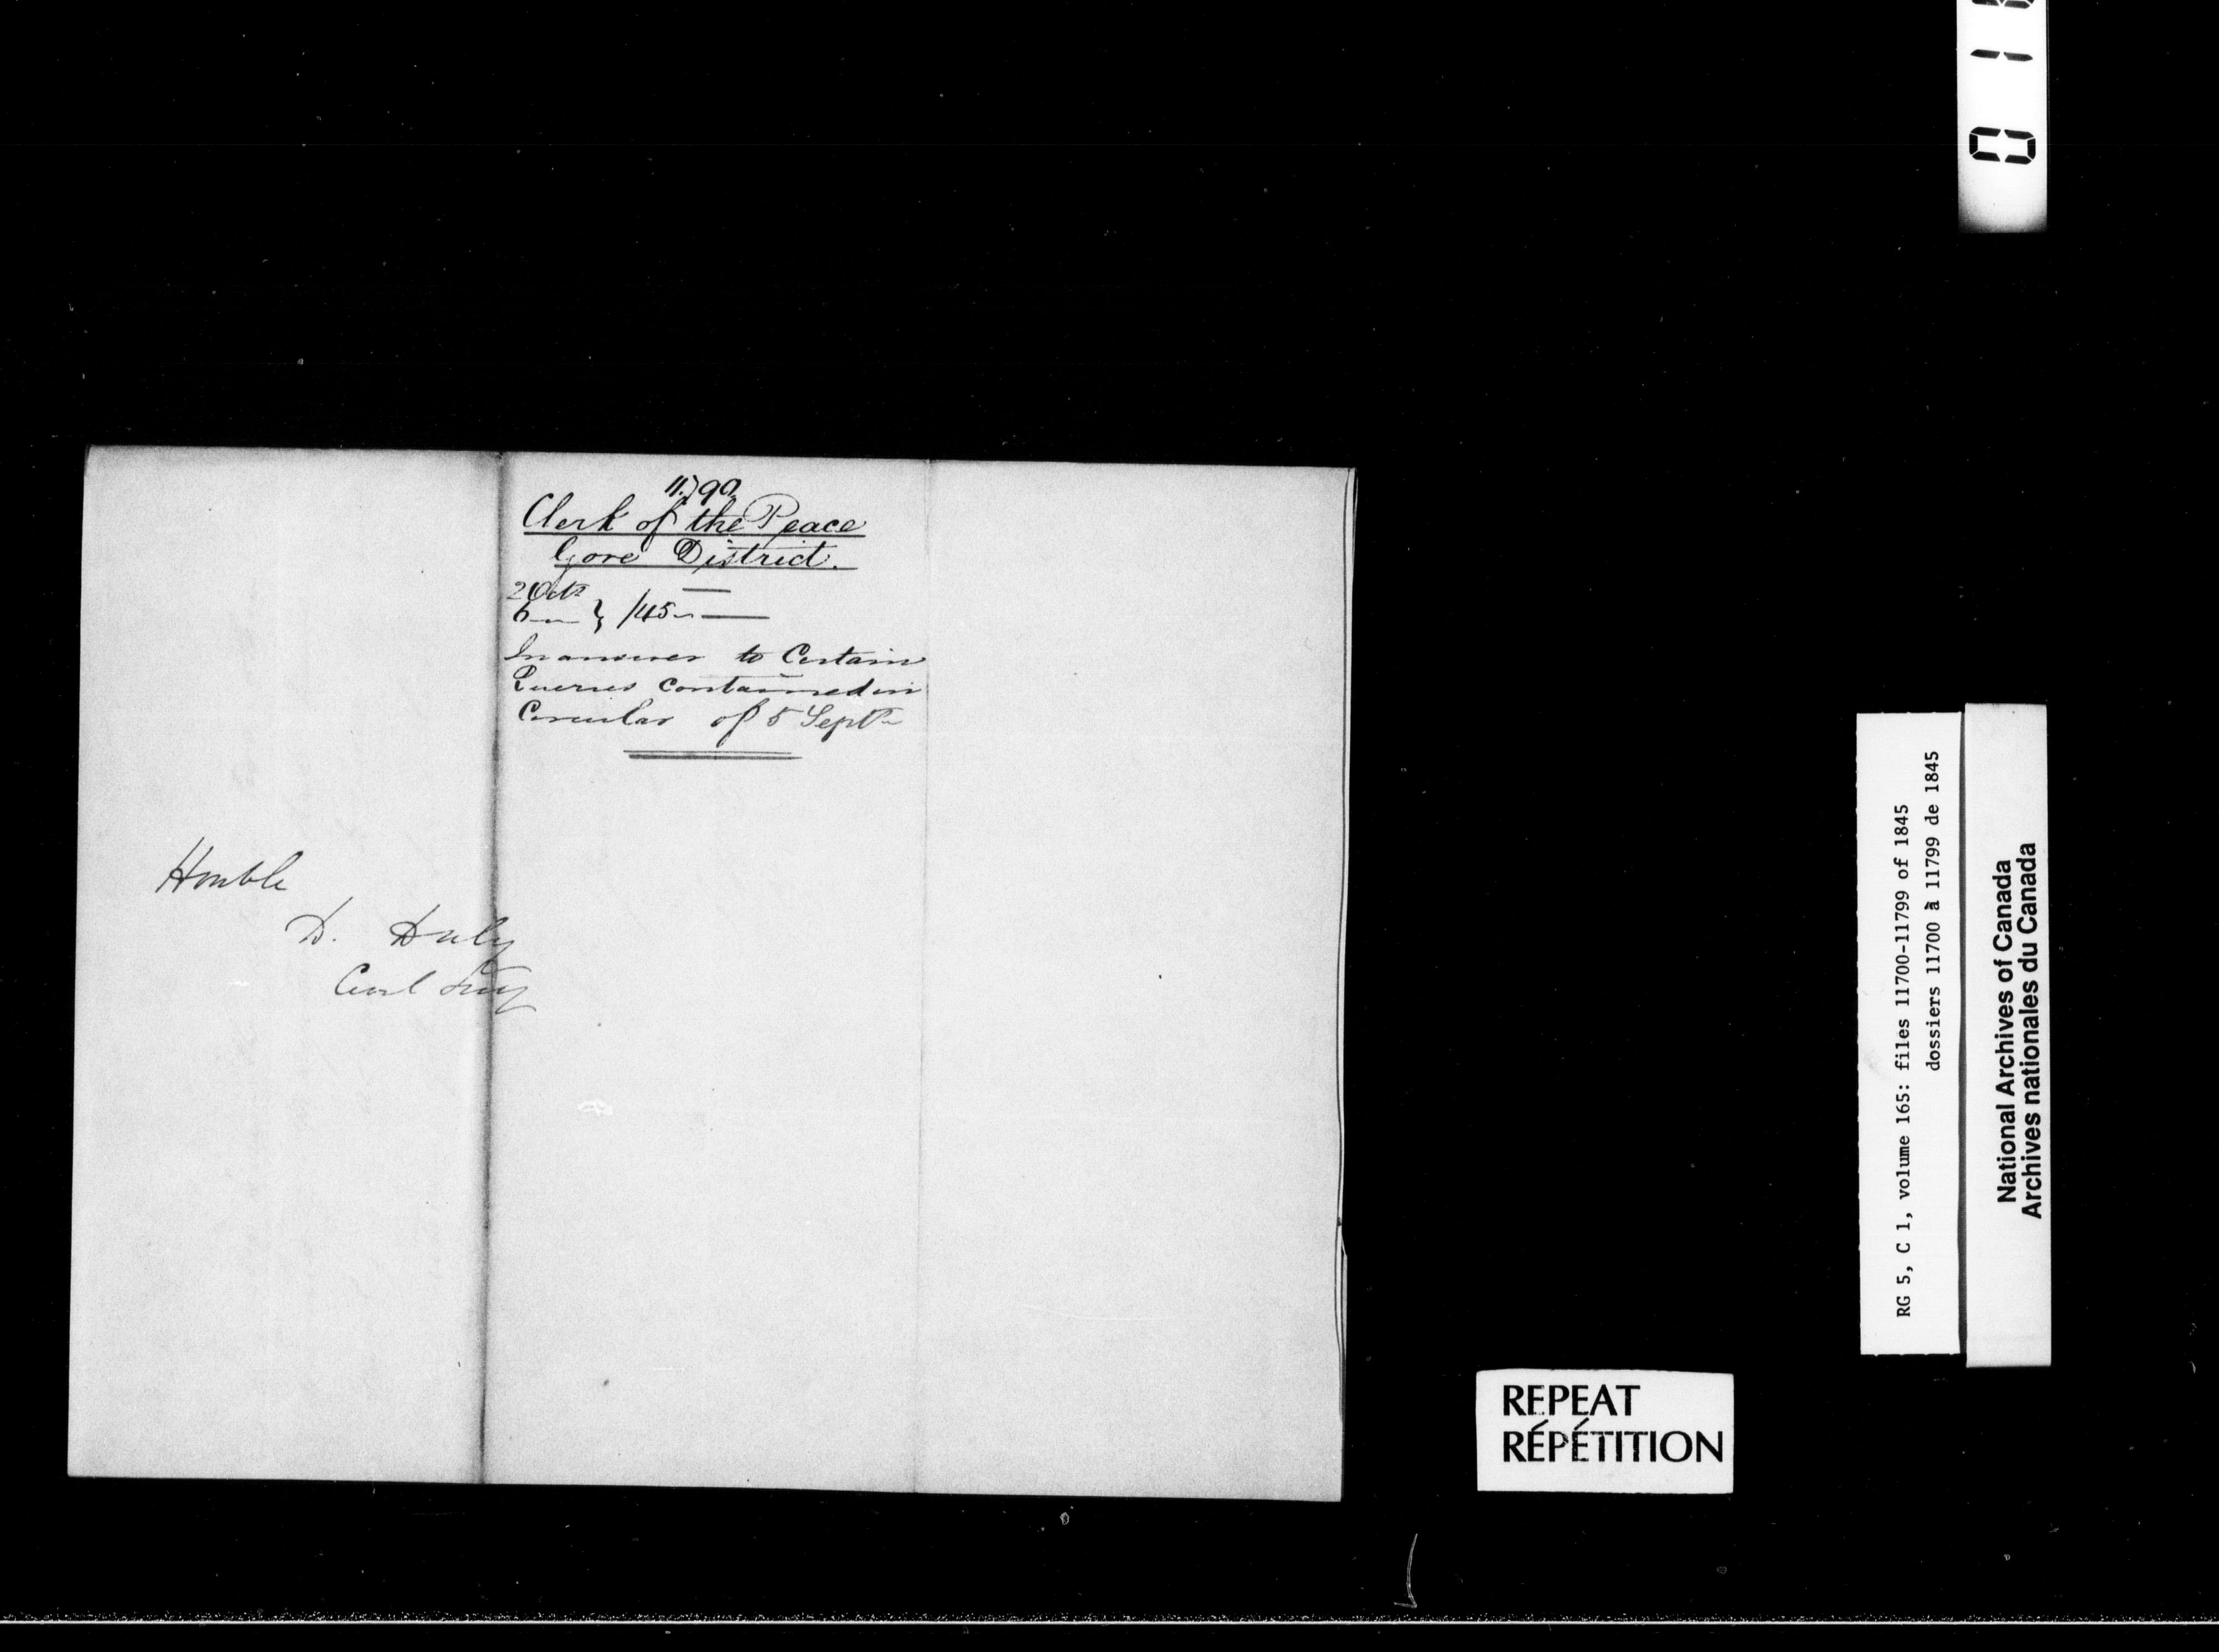 11.790
Clerk of the Peace
Gore District.
2 Octr
6 — } /45 —
In answer to Certain
Queries contained in
Circular of 5 Septr
Honble
D. Daly
Civil Secy
RG 5, C 1, volume 165: files 11700-11799 of 1845
dossiers 11700 à 11799 de 1845
National Archives of Canada
Archives nationales du Canada
REPEAT
RÉPÉTITION